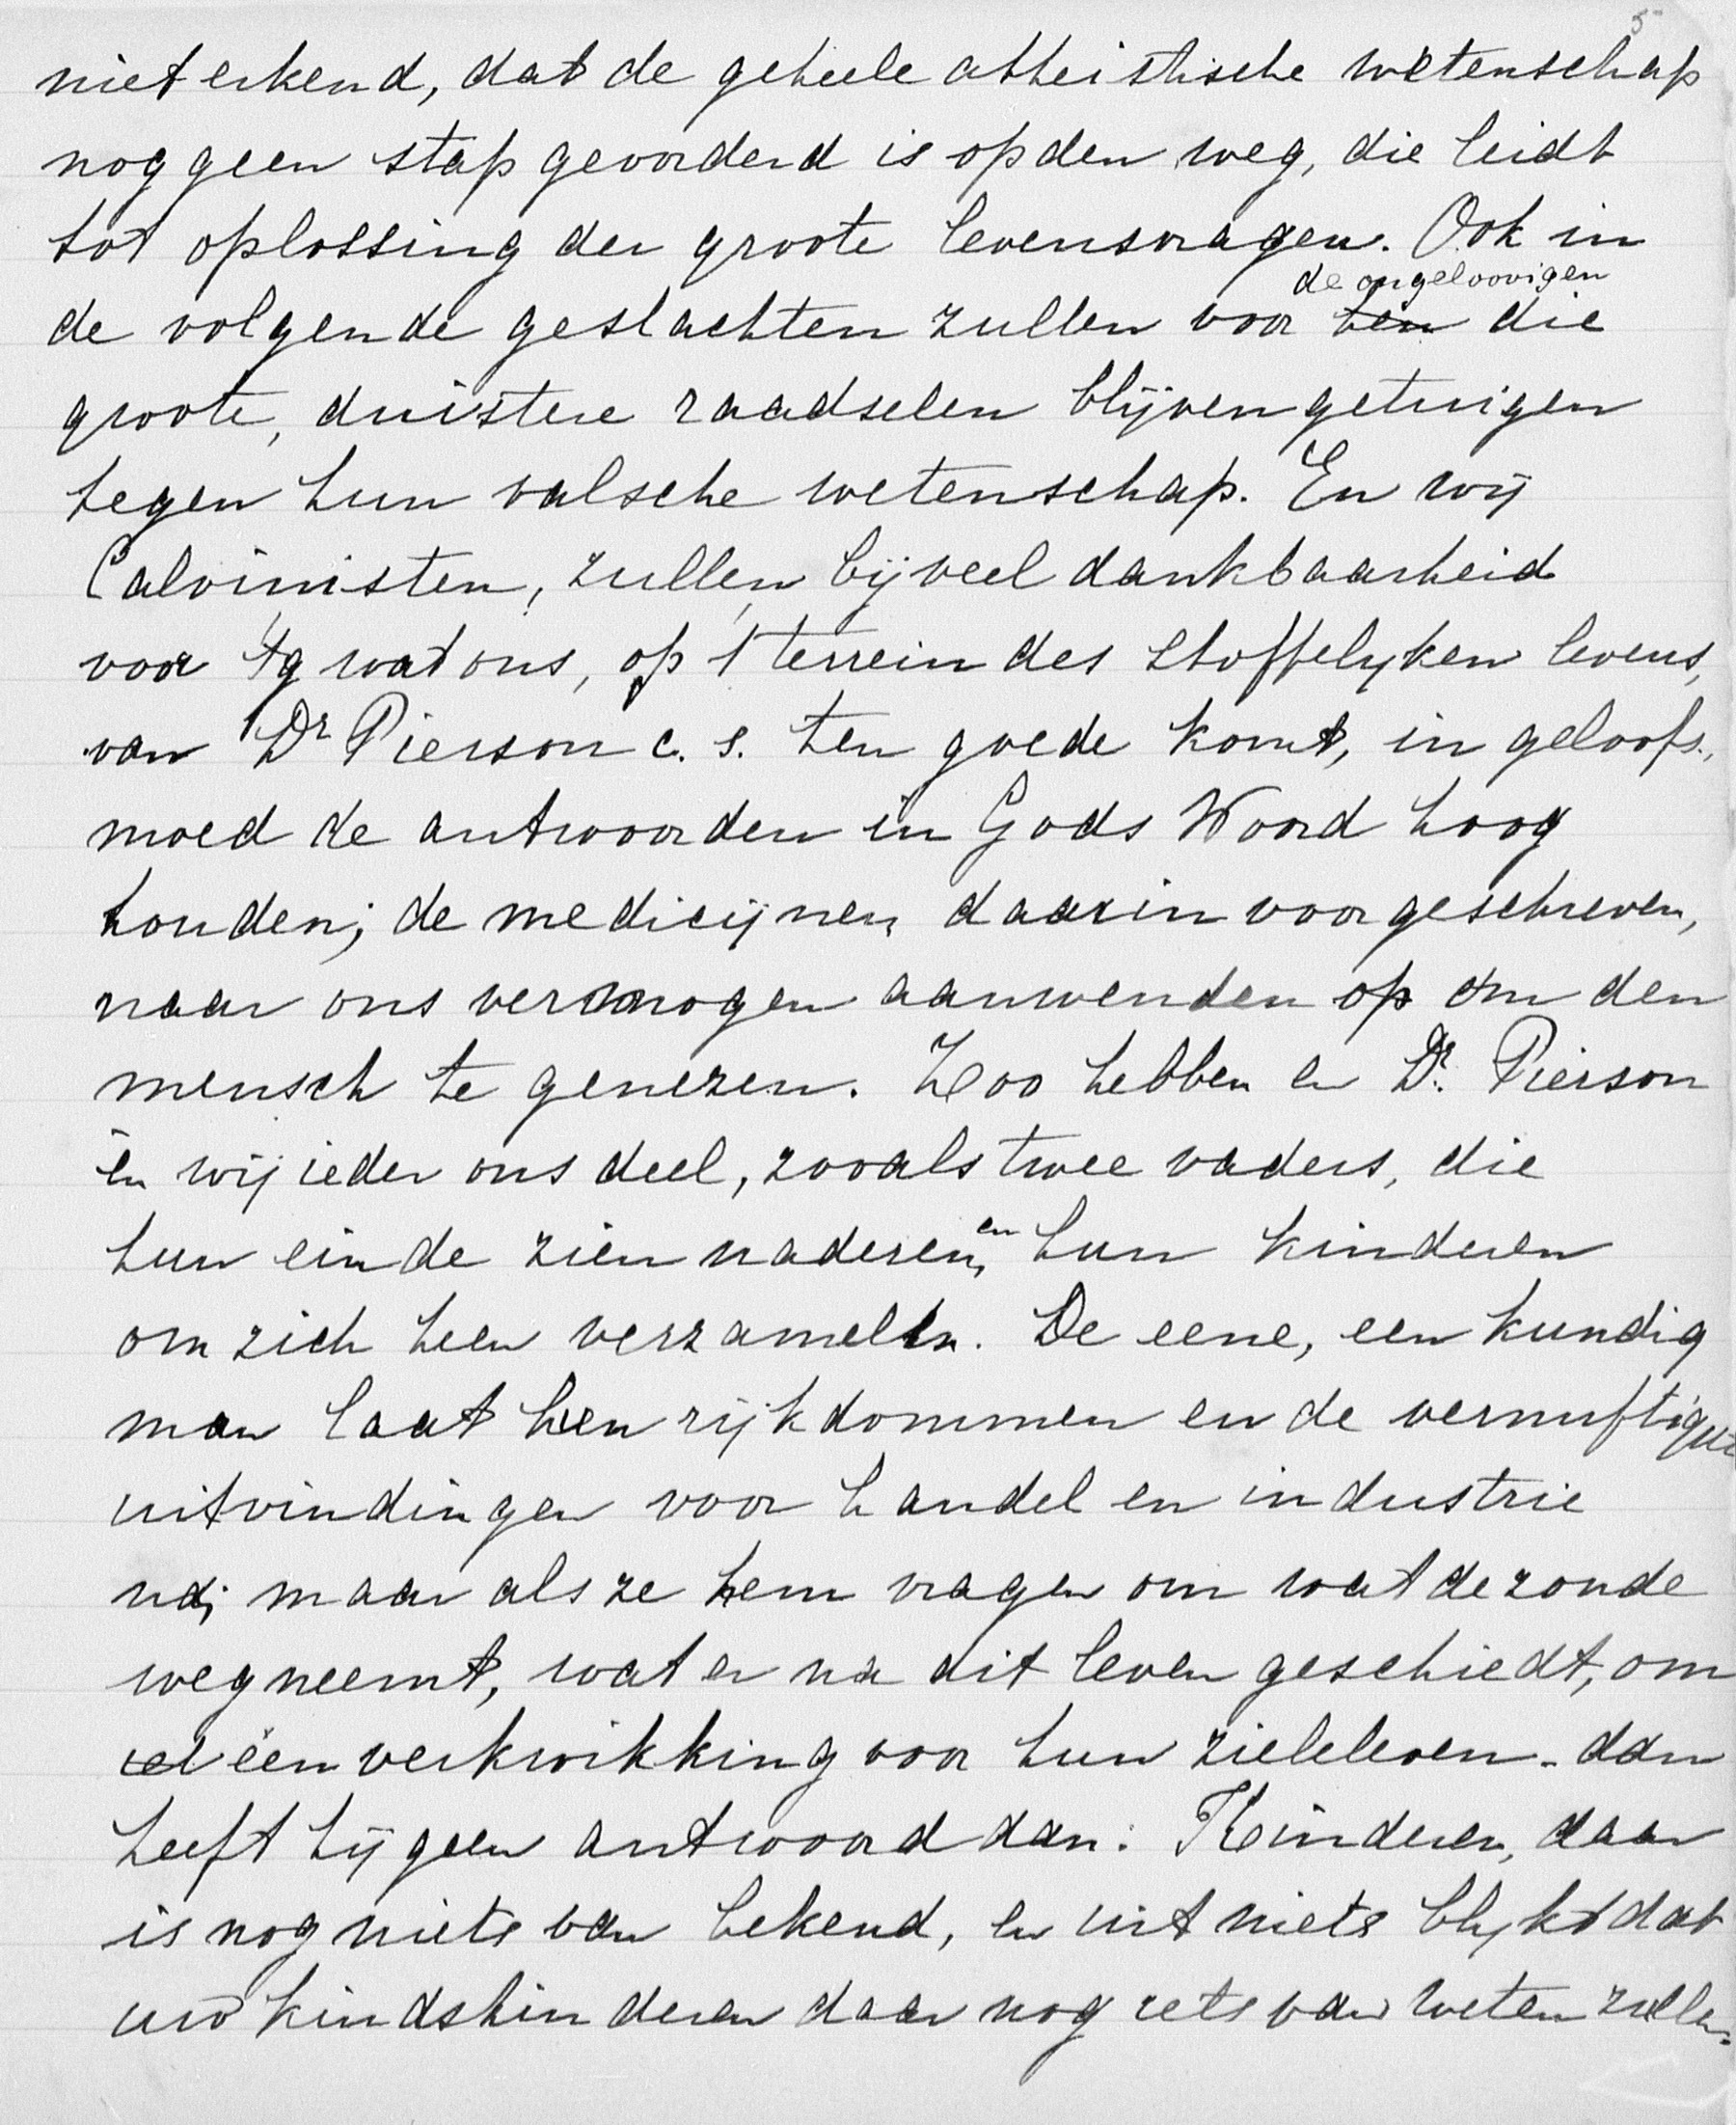 5
niet erkend, dat de geheele atheistische wetenschap
nog geen stap gevorderd is op den weg, die leidt
tot oplossing der groote levensvragen. Ook in
de ongeloovigen
de volgende geslachten zullen voor hen die
groote, duistere raadselen blijven getuigen
tegen hun valsche wetenschap. En wij
Calvinisten, zullen, bij veel dankbaarheid
voor wat ons, op 't terrein des stoffelijken levens,
van Dr Pierson c.s. ten goede komt, in geloofs-
moed de antwoorden in Gods Woord hoog
houden; de medicijnen daarin voorgeschreven,
naar ons vermogen aanwenden op om den
mensch te genezen. Zoo hebben en Dr. Pierson
èn wij ieder ons deel, zooals twee vaders, die
hun einde zien naderen, en hun kinderen
om zich heen verzamelen. De eene, een kundig
man laat hen rijkdommen en de vernuftigste
uitvindingen voor handel en industrie
na; maar als ze hem vragen om wat de zonde
wegneemt, wat er na dit leven geschiedt, om
één verkwikking voor hun zieleleven - dan
heeft hij geen antwoord dan: Kinderen, daar
is nog niets van bekend, en uit niets blijkt dat
uw kindskinderen daar nog iets van weten zullen.